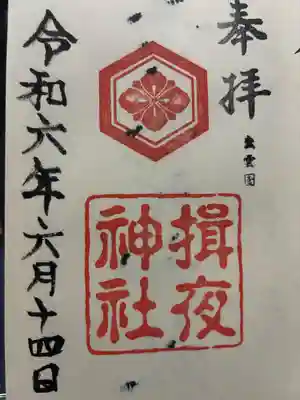 奉拝
出雲國
揖夜
神社
令和六年六月十四日